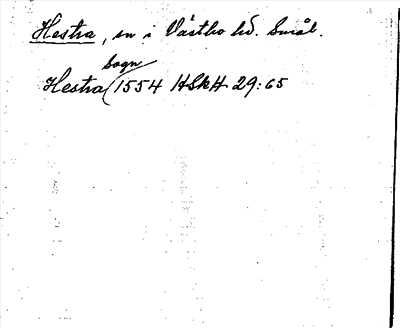 Hestra, sn i Västbo hd. Smål.
sogn
Hestra (1554 HSkH 29:65